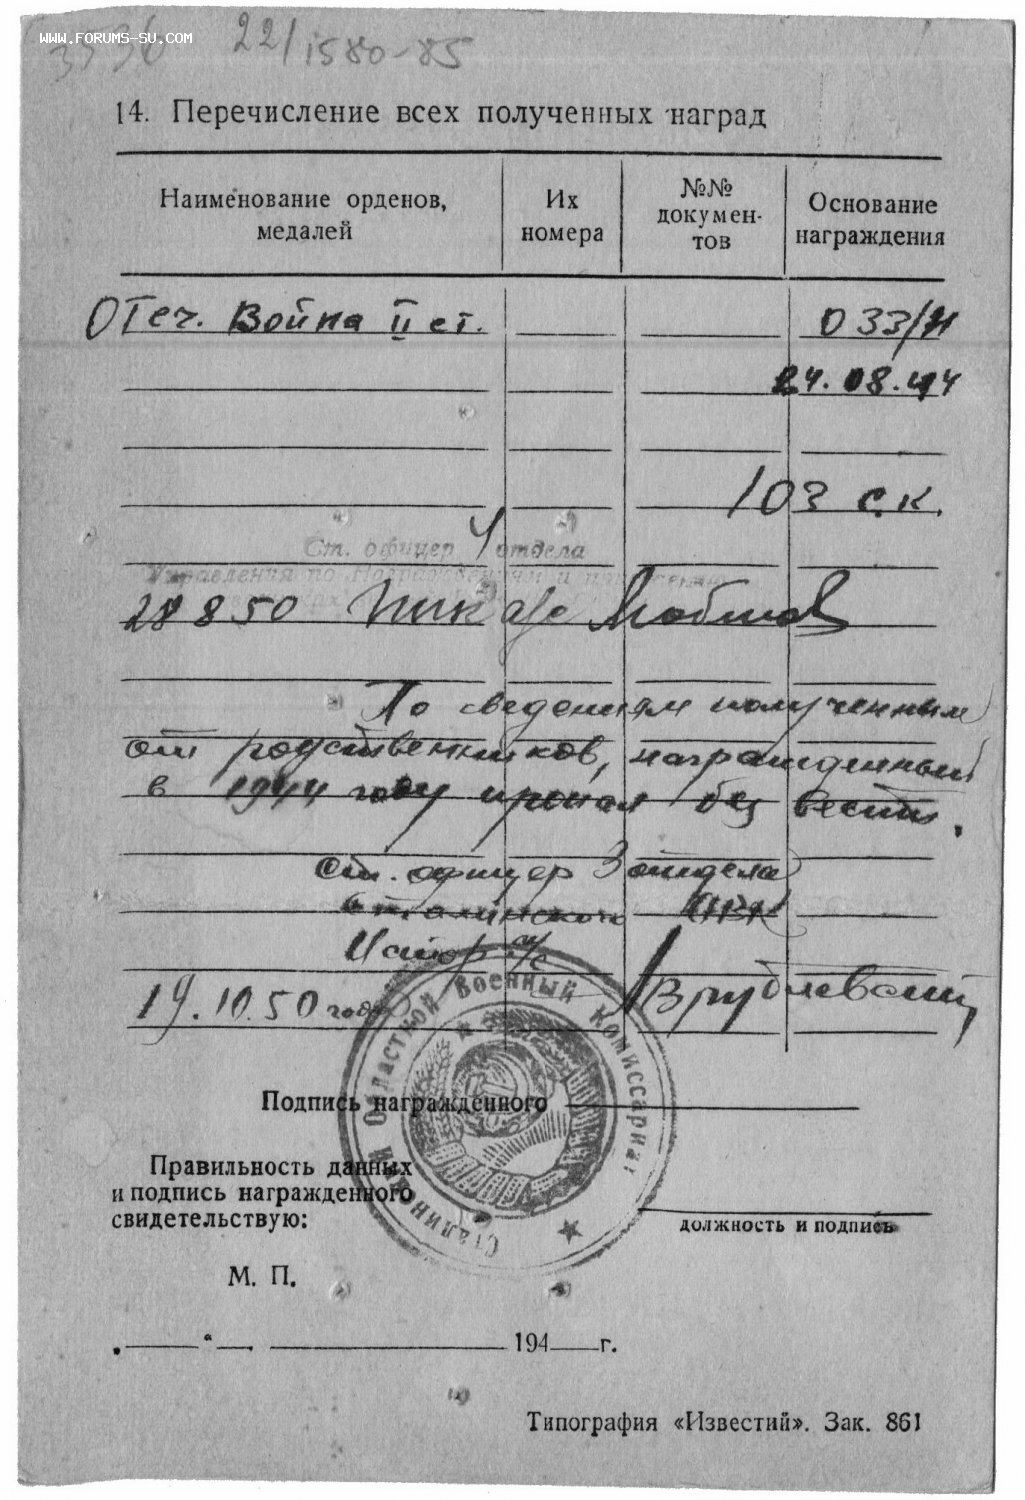 WWW.FORUMS-SU.COM
22/1580-85
14. Перечисление всех полученных наград
Наименование орденов, медалей
Их номера
№№ докумен-тов
Основание награждения
Отеч. Война II ст.
033/н
24.08.44
103 с.к.
Ст. офицер 4 отдела
Управления по Награждениям и
28850
По сведениям полученным
от родственников, награжденный
в 1944 году пропал без вести.
Ст. офицер 3 отдела
Сталинского ОВК
19.10.50 года
Врублевский
Сталинский Областной Военный Комиссариат
Подпись награжденного
Правильность данных
и подпись награжденного
свидетельствую:
должность и подпись
М. П.
„ “ 194 г.
Типография «Известий». Зак. 861